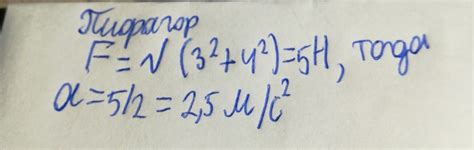 Пифагор
F = √ (3²+4²)=5Н, тогда
a = 5/2 = 2,5 м/с²